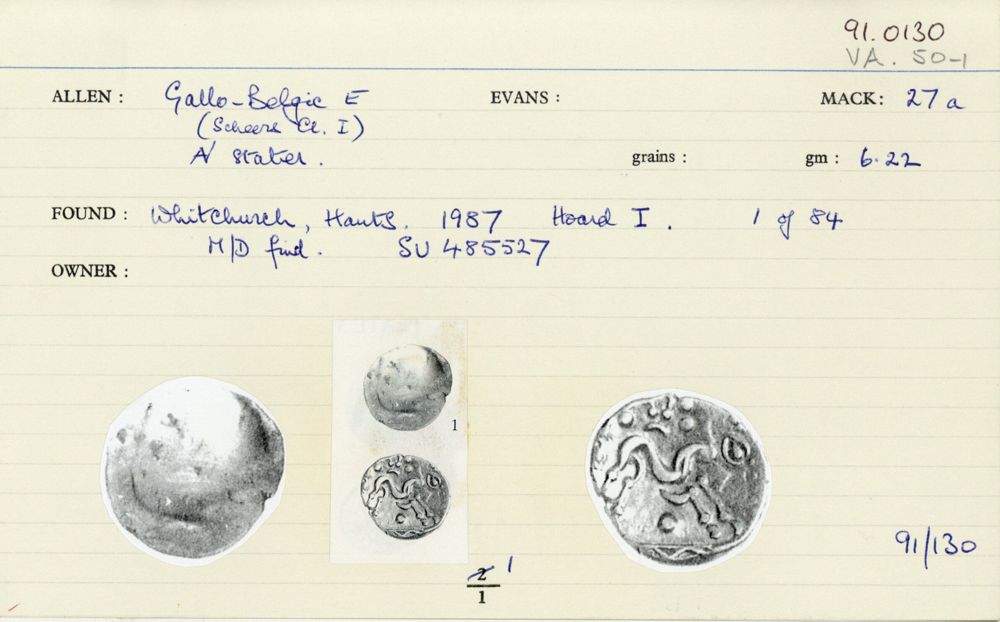 91.0130
VA. 50-1
ALLEN : Gallo-Belgic E EVANS : MACK: 27a
(Scheers Cl. I)
N stater. grains : gm : 6.22
FOUND : Whitchurch, Hants. 1987 Hoard I. 1 of 84
M/D find. SU 485527
OWNER :
1
91/130
2 1
1